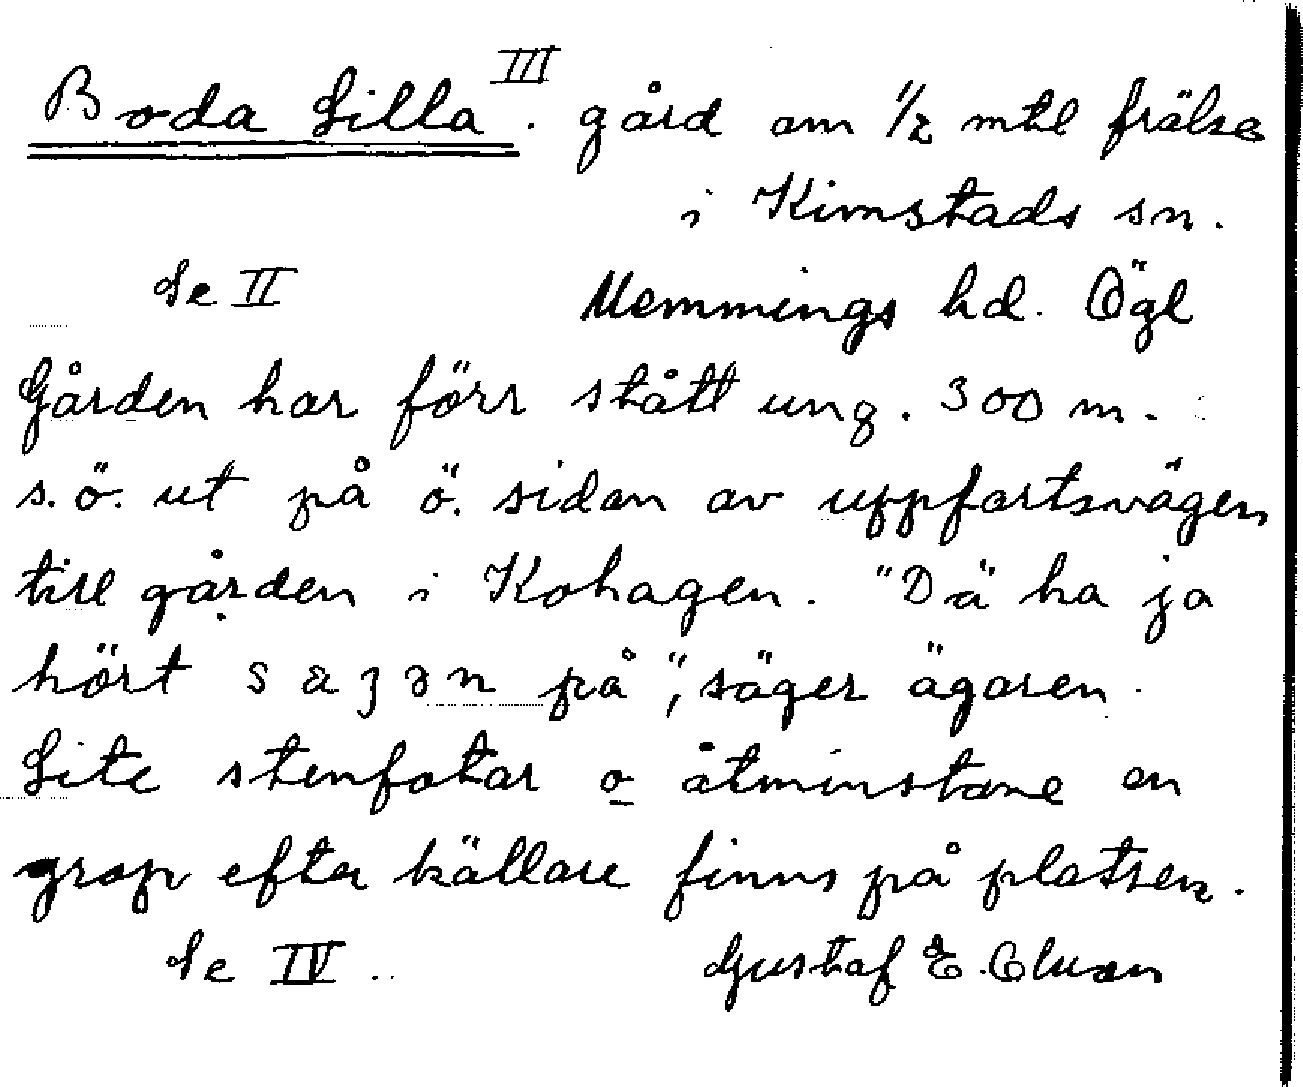 Boda Lilla III. gård om 1/2 mtl frälse
i Kimstads sn.
Se II Memmings hd. Ögl
Gården har förr stått ung. 300 m.
s.ö. ut på ö. sidan av uppfartsvägen
till gården i Kohagen. "Dä ha ja
hört saȝən på", säger ägaren.
Lite stenfotar o åtminstone en
grop efter källare finns på platsen.
Se IV. Gustaf E.